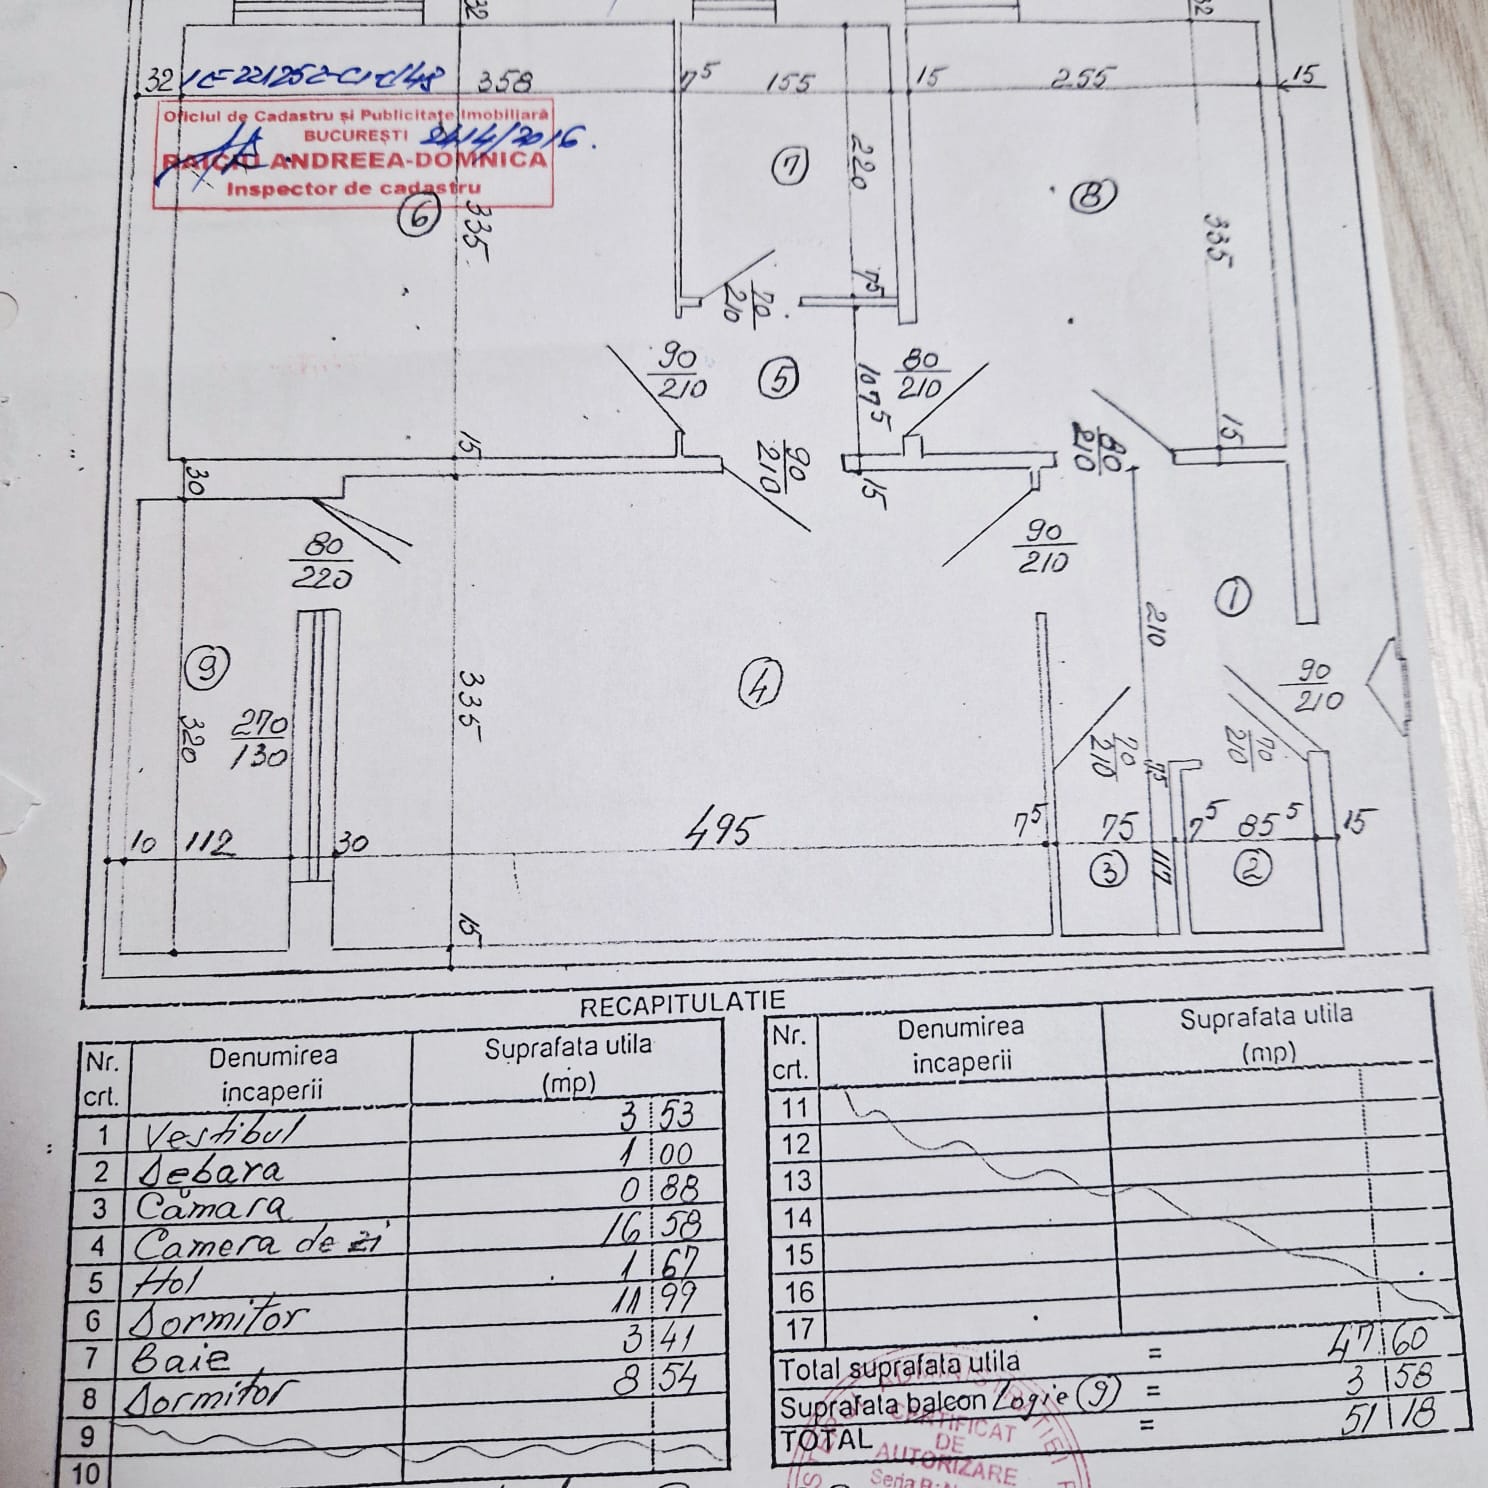 32
32
32
1CE 221252-C1-C1/48
358
7⁵
155
15
255
15
Oficiul de Cadastru și Publicitate Imobiliară
BUCUREȘTI
/2016.
ANDREEA-DOMNICA
Inspector de cadastru
6
335
7
220
8
335
70
210
7⁵
90
210
5
107⁵
80
210
15
90
210
15
80
210
15
30
80
220
90
210
1
210
9
270
130
320
335
4
90
210
70
210
7⁵
70
210
10
112
30
495
7⁵
75
7⁵
85⁵
15
3
117
2
15
RECAPITULATIE
Nr. crt.
Denumirea incaperii
Suprafata utila (mp)
1 Vestibul 3 53
2 Debara 1 00
3 Cămara 0 88
4 Camera de zi 16 58
5 Hol 1 67
6 Dormitor 11 99
7 Baie 3 41
8 Dormitor 8 54
9
10
Nr. crt.
Denumirea incaperii
Suprafata utila (mp)
11
12
13
14
15
16
17
Total suprafata utila = 47 60
Suprafata balcon Logie (9) = 3 58
TOTAL = 51 18
CERTIFICAT
DE
AUTORIZARE
Seria